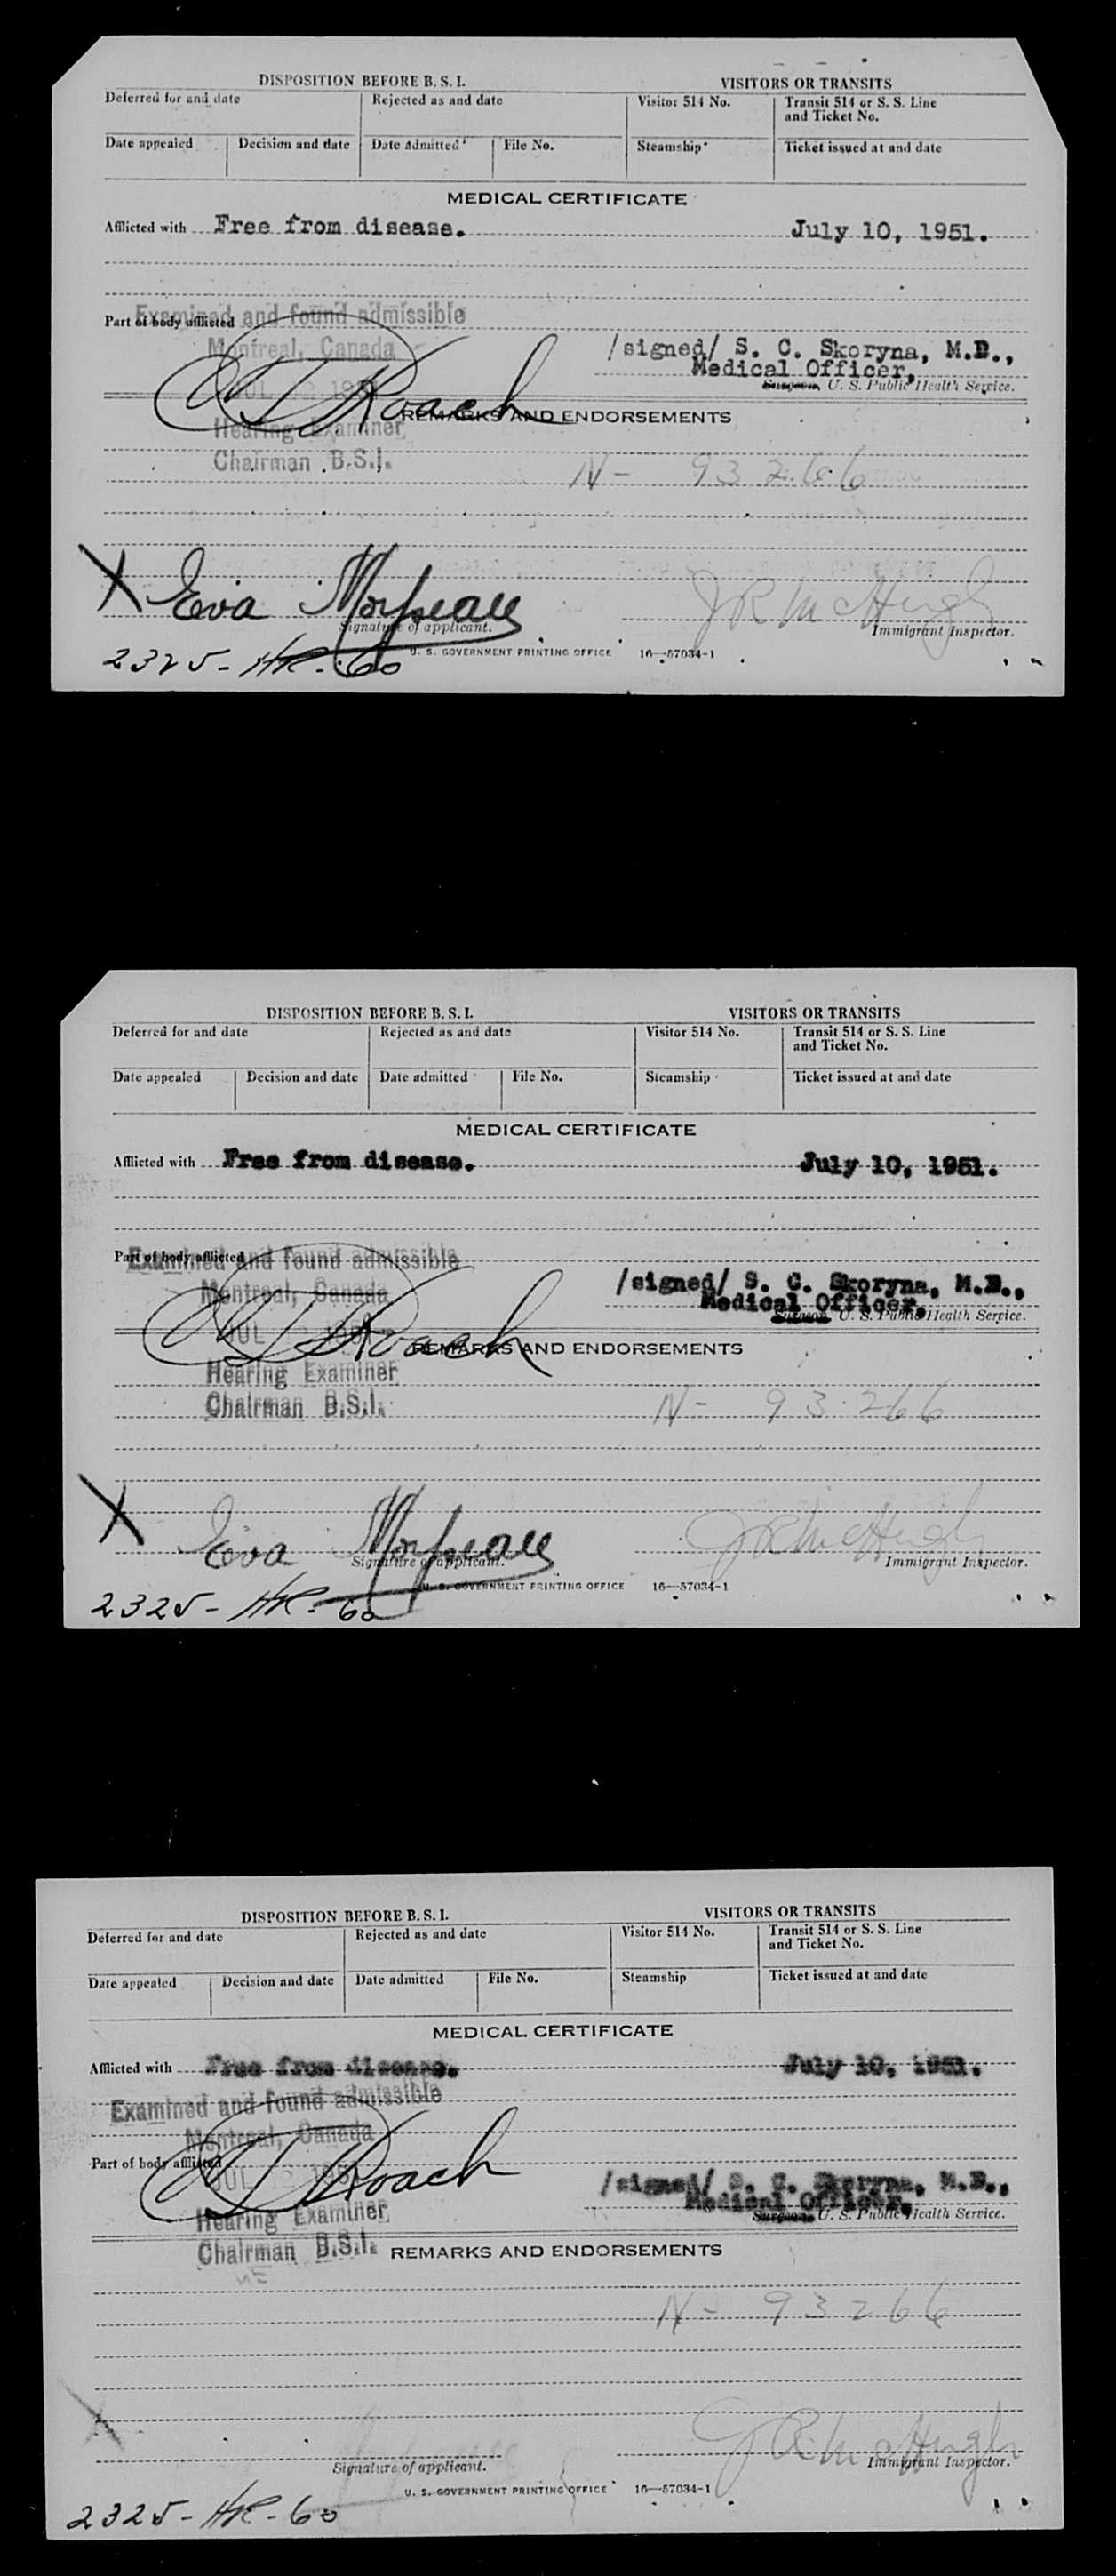 DISPOSITION BEFORE B. S. I. VISITORS OR TRANSITS
Deferred for and date Rejected as and date Visitor 514 No. Transit 514 or S. S. Line and Ticket No.
Date appealed Decision and date Date admitted File No. Steamship Ticket issued at and date
MEDICAL CERTIFICATE
Afflicted with Free from disease. July 10, 1951.
Examined and found admissible
Part of body afflicted
Montreal, Canada
/signed/ S. C. Skoryna, M.D.,
Medical Officer,
JUL 195
Roach
Surgeon, U. S. Public Health Service.
REMARKS AND ENDORSEMENTS
Hearing Examiner
Chairman B.S.I.
N- 93266
X Eva
JR McHugh
Signature of applicant. Immigrant Inspector.
2325- -60
U. S. GOVERNMENT PRINTING OFFICE 16—57034-1
DISPOSITION BEFORE B. S. I. VISITORS OR TRANSITS
Deferred for and date Rejected as and date Visitor 514 No. Transit 514 or S. S. Line and Ticket No.
Date appealed Decision and date Date admitted File No. Steamship Ticket issued at and date
MEDICAL CERTIFICATE
Afflicted with Free from disease. July 10, 1951.
Examined and found admissible
Part of body afflicted
Montreal, Canada
/signed/ S. C. Skoryna, M.D.,
Medical Officer,
JUL 195
Roach
Surgeon, U. S. Public Health Service.
REMARKS AND ENDORSEMENTS
Hearing Examiner
Chairman B.S.I.
N- 93266
X Eva
JR McHugh
Signature of applicant. Immigrant Inspector.
U. S. GOVERNMENT PRINTING OFFICE 16—57034-1
2325- -60
DISPOSITION BEFORE B. S. I. VISITORS OR TRANSITS
Deferred for and date Rejected as and date Visitor 514 No. Transit 514 or S. S. Line and Ticket No.
Date appealed Decision and date Date admitted File No. Steamship Ticket issued at and date
MEDICAL CERTIFICATE
Afflicted with Free from disease. July 10, 1951.
Examined and found admissible
Montreal, Canada
Part of body afflicted
JUL 195
Roach
/signed/ S. C. Skoryna, M.D.,
Medical Officer,
Surgeon, U. S. Public Health Service.
Hearing Examiner
Chairman B.S.I.
REMARKS AND ENDORSEMENTS
N- 93266
X
JR McHugh
Signature of applicant. Immigrant Inspector.
U. S. GOVERNMENT PRINTING OFFICE 16—57034-1
2325- -60